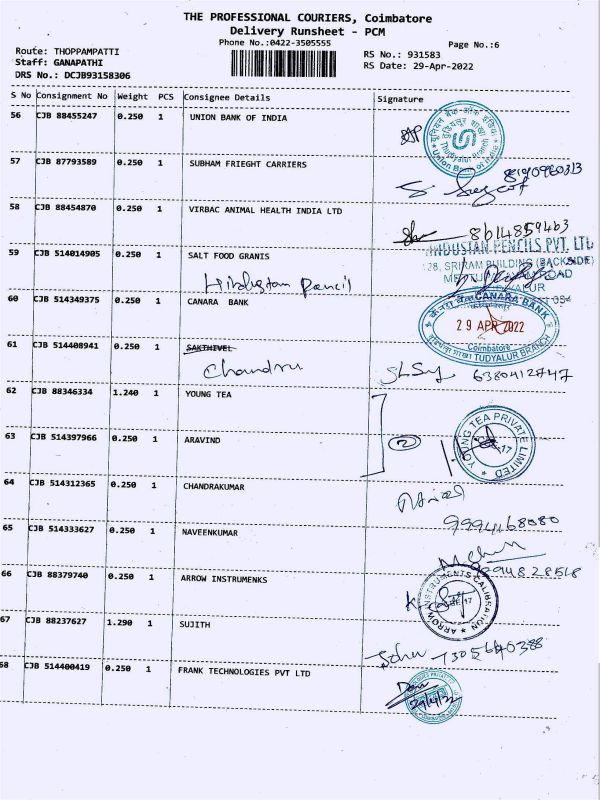 THE PROFESSIONAL COURIERS, Coimbatore
Delivery Runsheet - PCM
Phone No.:0422-3505555
Page No.:6
Route: THOPPAMPATTI
RS No.: 931583
Staff: GANAPATHI
RS Date: 29-Apr-2022
DRS No.: DCJB93158306
S No Consignment No Weight PCS Consignee Details Signature
56 CJB 88455247 0.250 1 UNION BANK OF INDIA
57 CJB 87793589 0.250 1 SUBHAM FRIEGHT CARRIERS
58 CJB 88454870 0.250 1 VIRBAC ANIMAL HEALTH INDIA LTD
8614859463
59 CJB 514014905 0.250 1 SALT FOOD GRANIS
HINDUSTAN PENCILS PVT. LTD
128, SRIRAM BUILDING (BACKSIDE)
Hindustan Pencil
60 CJB 514349375 0.250 1 CANARA BANK
CANARA BANK
29 APR 2022
Coimbatore
TUDYALUR BRANCH
61 CJB 514408941 0.250 1 SAKTHIVEL
Chandru
6380412747
62 CJB 88346334 1.240 1 YOUNG TEA
YOUNG TEA PRIVATE LIMITED
63 CJB 514397966 0.250 1 ARAVIND
2
64 CJB 514312365 0.250 1 CHANDRAKUMAR
9994168080
65 CJB 514333627 0.250 1 NAVEENKUMAR
66 CJB 88379740 0.250 1 ARROW INSTRUMENKS
ARROW INSTRUMENTS CALIBRATION
67 CJB 88237627 1.290 1 SUJITH
7305640388
68 CJB 514400419 0.250 1 FRANK TECHNOLOGIES PVT LTD
29/4/22